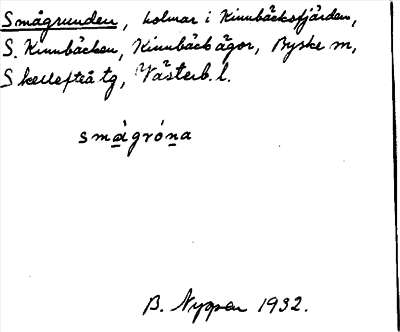 Smågrunden, holmar i Kinnbäcksfjärden,
S. Kinnbäcken, Kinnbäck ägor, Byske sn,
Skellefteå tg, Västerb. l.
smågróna
B. Nyman 1932.